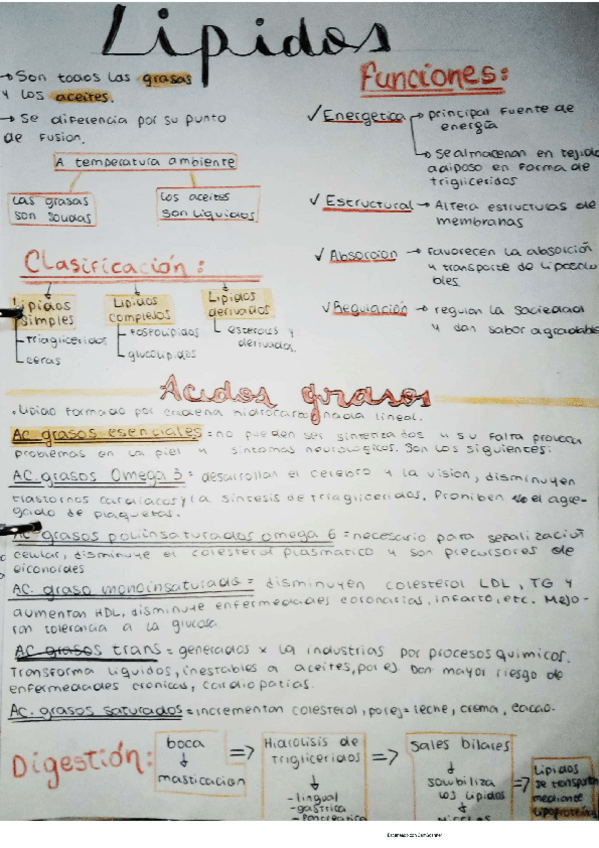 Lipidos
→ Son todos las grasas
y los aceites.
→ Se diferencia por su punto
de fusion.
A temperatura ambiente
Las grasas
son solidas
Los aceites
son liquidos
Funciones:
✓ Energetica → principal fuente de
energía
→ se almacenan en tejido
adiposo en forma de
trigliceridos
✓ Estructural → Altera estructuras de
membranas
✓ Absorcion → favorecen la absorción
y transporte de liposolu
bles.
✓ Regulación → regulan la saciedad
y dan sabor agradable
Clasificación:
Lipidos
simples
triagliceridos
ceras
Lipidos
complejos
fosfolipidos
glucolipidos
Lipidos
derivados
esteroles y
derivados.
Acidos grasos
. Lipido formado por cadena hidrocarbonada lineal.
Ac. grasos esenciales = no pueden ser sintetizados y su falta provoca
problemas en la piel y sintomas neurologicos. Son los siguientes:
AC. grasos Omega 3 = desarrollan el cerebro y la vision, disminuyen
trastornos cardiacos y la sintesis de triagliceridos. Prohiben el agre-
gado de plaquetas.
AC. grasos poliinsaturados omega 6 = necesario para señalización
celular, disminuye el colesterol plasmatico y son precursores de
eiconoides
AC. graso monoinsaturado = disminuyen colesterol LDL, TG y
aumentan HDL, disminuye enfermedades coronarias, infarto, etc. Mejo-
ran tolerancia a la glucosa.
AC. grasos trans = generados x la industrias por procesos quimicos.
Transforma liquidos, inestables a aceites, por ej. Dan mayor riesgo de
enfermedades cronicas, cardiopatias.
AC. grasos saturados = incrementan colesterol, por ej = leche, crema, cacao.
Digestión:
boca
↓
masticacion
⇒
Hidrolisis de
trigliceridos
↓
- lingual
- gastrica
- pancreatica
⇒
Sales biliares
↓
solubiliza
los lipidos
↓
⇒
Lipidos
se transportan
mediante
lipoproteinas
Escaneado con CamScanner